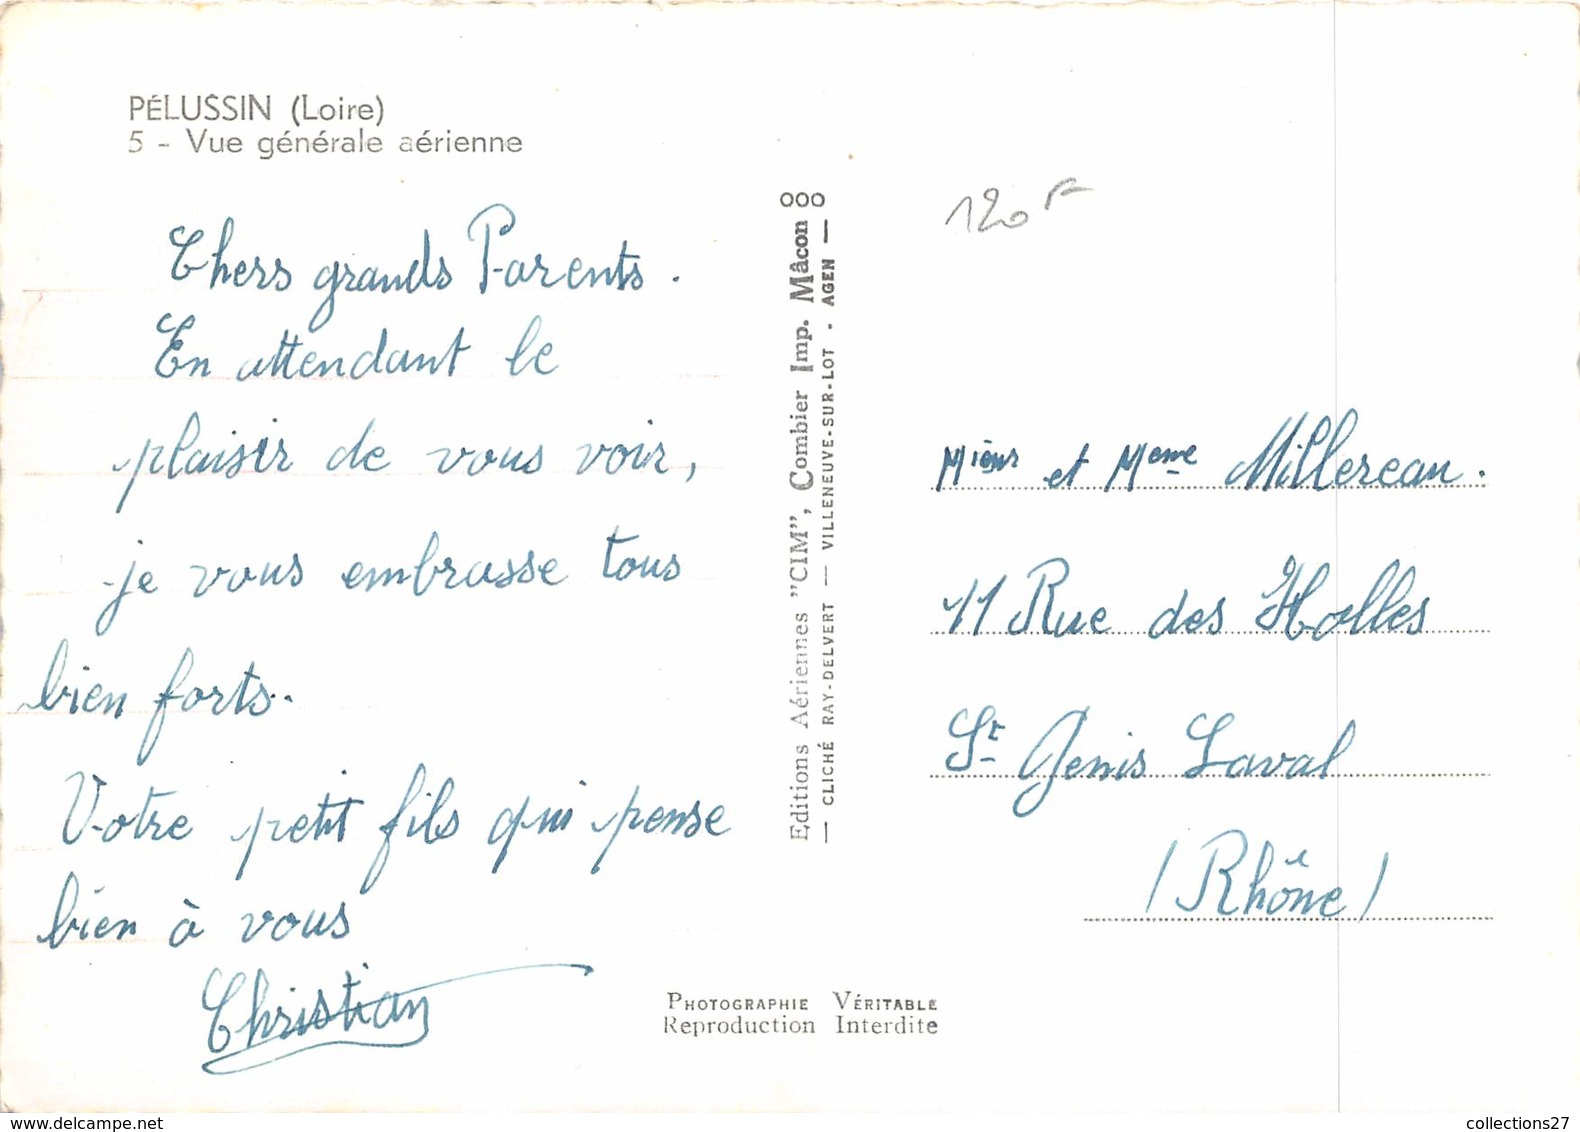 PÉLUSSIN (Loire)
5 - Vue générale aérienne
Chers grands Parents.
En attendant le
plaisir de vous voir,
je vous embrasse tous
bien forts.
Votre petit fils qui pense
bien à vous
Christian
Editions Aériennes "CIM", Combier Imp. Mâcon ooo
— CLICHÉ RAY-DELVERT — VILLENEUVE-SUR-LOT . AGEN —
120F
Mieur et Meme Millereau.
11 Rue des Halles
St Genis Laval
(Rhône)
PHOTOGRAPHIE VÉRITABLE
Reproduction Interdite
www.delcampe.net
collections27